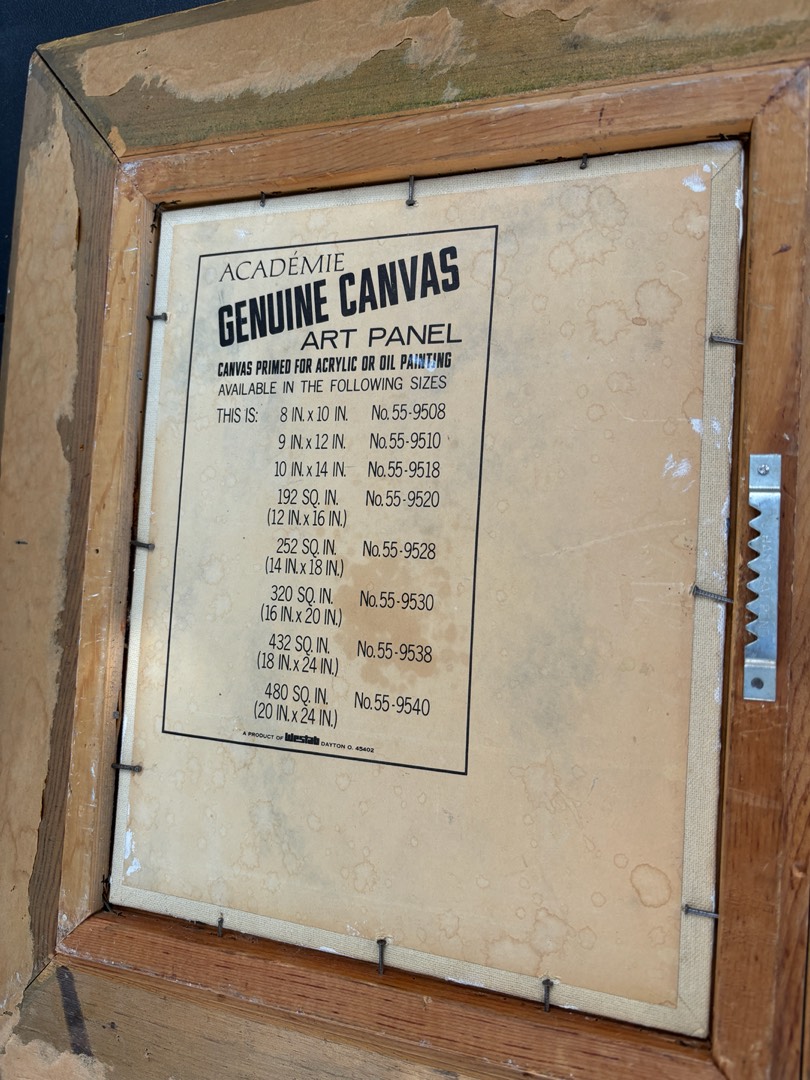 ACADÉMIE
GENUINE CANVAS
ART PANEL
CANVAS PRIMED FOR ACRYLIC OR OIL PAINTING
AVAILABLE IN THE FOLLOWING SIZES
THIS IS: 8 IN. x 10 IN. No. 55-9508
9 IN. x 12 IN. No. 55-9510
10 IN. x 14 IN. No. 55-9518
192 SQ. IN. No. 55-9520
(12 IN. x 16 IN.)
252 SQ. IN. No. 55-9528
(14 IN. x 18 IN.)
320 SQ. IN. No. 55-9530
(16 IN. x 20 IN.)
432 SQ. IN. No. 55-9538
(18 IN. x 24 IN.)
480 SQ. IN. No. 55-9540
(20 IN. x 24 IN.)
A PRODUCT OF Westab DAYTON O. 45402